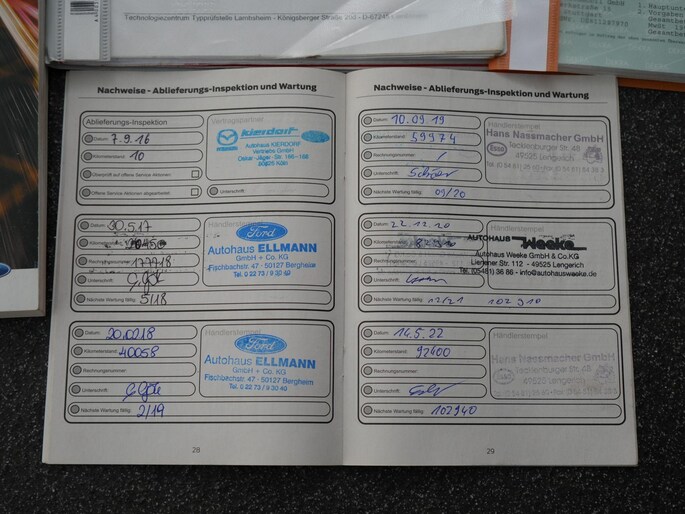 Technologiezentrum Typprüfstelle Lambsheim - Königsberger Straße 20d - D-67245
Nachweise - Ablieferungs-Inspektion und Wartung
Ablieferungs-Inspektion
Datum: 7.9.16
Kilometerstand: 10
Überprüft auf offene Service Aktionen:
Offene Service Aktionen abgearbeitet:
Vertragspartner
mazda Kierdorf Ford
Autohaus KIERDORF
Vertriebs GmbH
Oskar-Jäger-Str. 166-168
50825 Köln
Unterschrift:
Datum: 30.5.17
Kilometerstand:
Rechnungsnummer: 177718
Unterschrift:
Nächste Wartung fällig: 5/18
Händlerstempel
Ford
Autohaus ELLMANN
GmbH + Co. KG
Fischbachstr. 47 - 50127 Bergheim
Tel. 0 22 73 / 9 30 40
Datum: 20.02.18
Kilometerstand: 40058
Rechnungsnummer:
Unterschrift:
Nächste Wartung fällig: 2/19
Händlerstempel
Ford
Autohaus ELLMANN
GmbH + Co. KG
Fischbachstr. 47 - 50127 Bergheim
Tel. 0 22 73 / 9 30 40
28
Nachweise - Ablieferungs-Inspektion und Wartung
Datum: 10.09.19
Kilometerstand: 59974
Rechnungsnummer: /
Unterschrift:
Nächste Wartung fällig: 09/20
Händlerstempel
Hans Nassmacher GmbH
Esso Tecklenburger Str. 48
49525 Lengerich
Datum: 22.12.20
Kilometerstand:
Rechnungsnummer:
Unterschrift:
Nächste Wartung fällig: 12/21 102 910
Händlerstempel
AUTOHAUS Weeke
Autohaus Weeke GmbH & Co.KG
Lienener Str. 112 - 49525 Lengerich
Tel. (05481) 36 86 - info@autohausweeke.de
Datum: 14.5.22
Kilometerstand: 92400
Rechnungsnummer:
Unterschrift:
Nächste Wartung fällig: 102940
Händlerstempel
Hans Nassmacher GmbH
Esso Tecklenburger Str. 48
49525 Lengerich
29